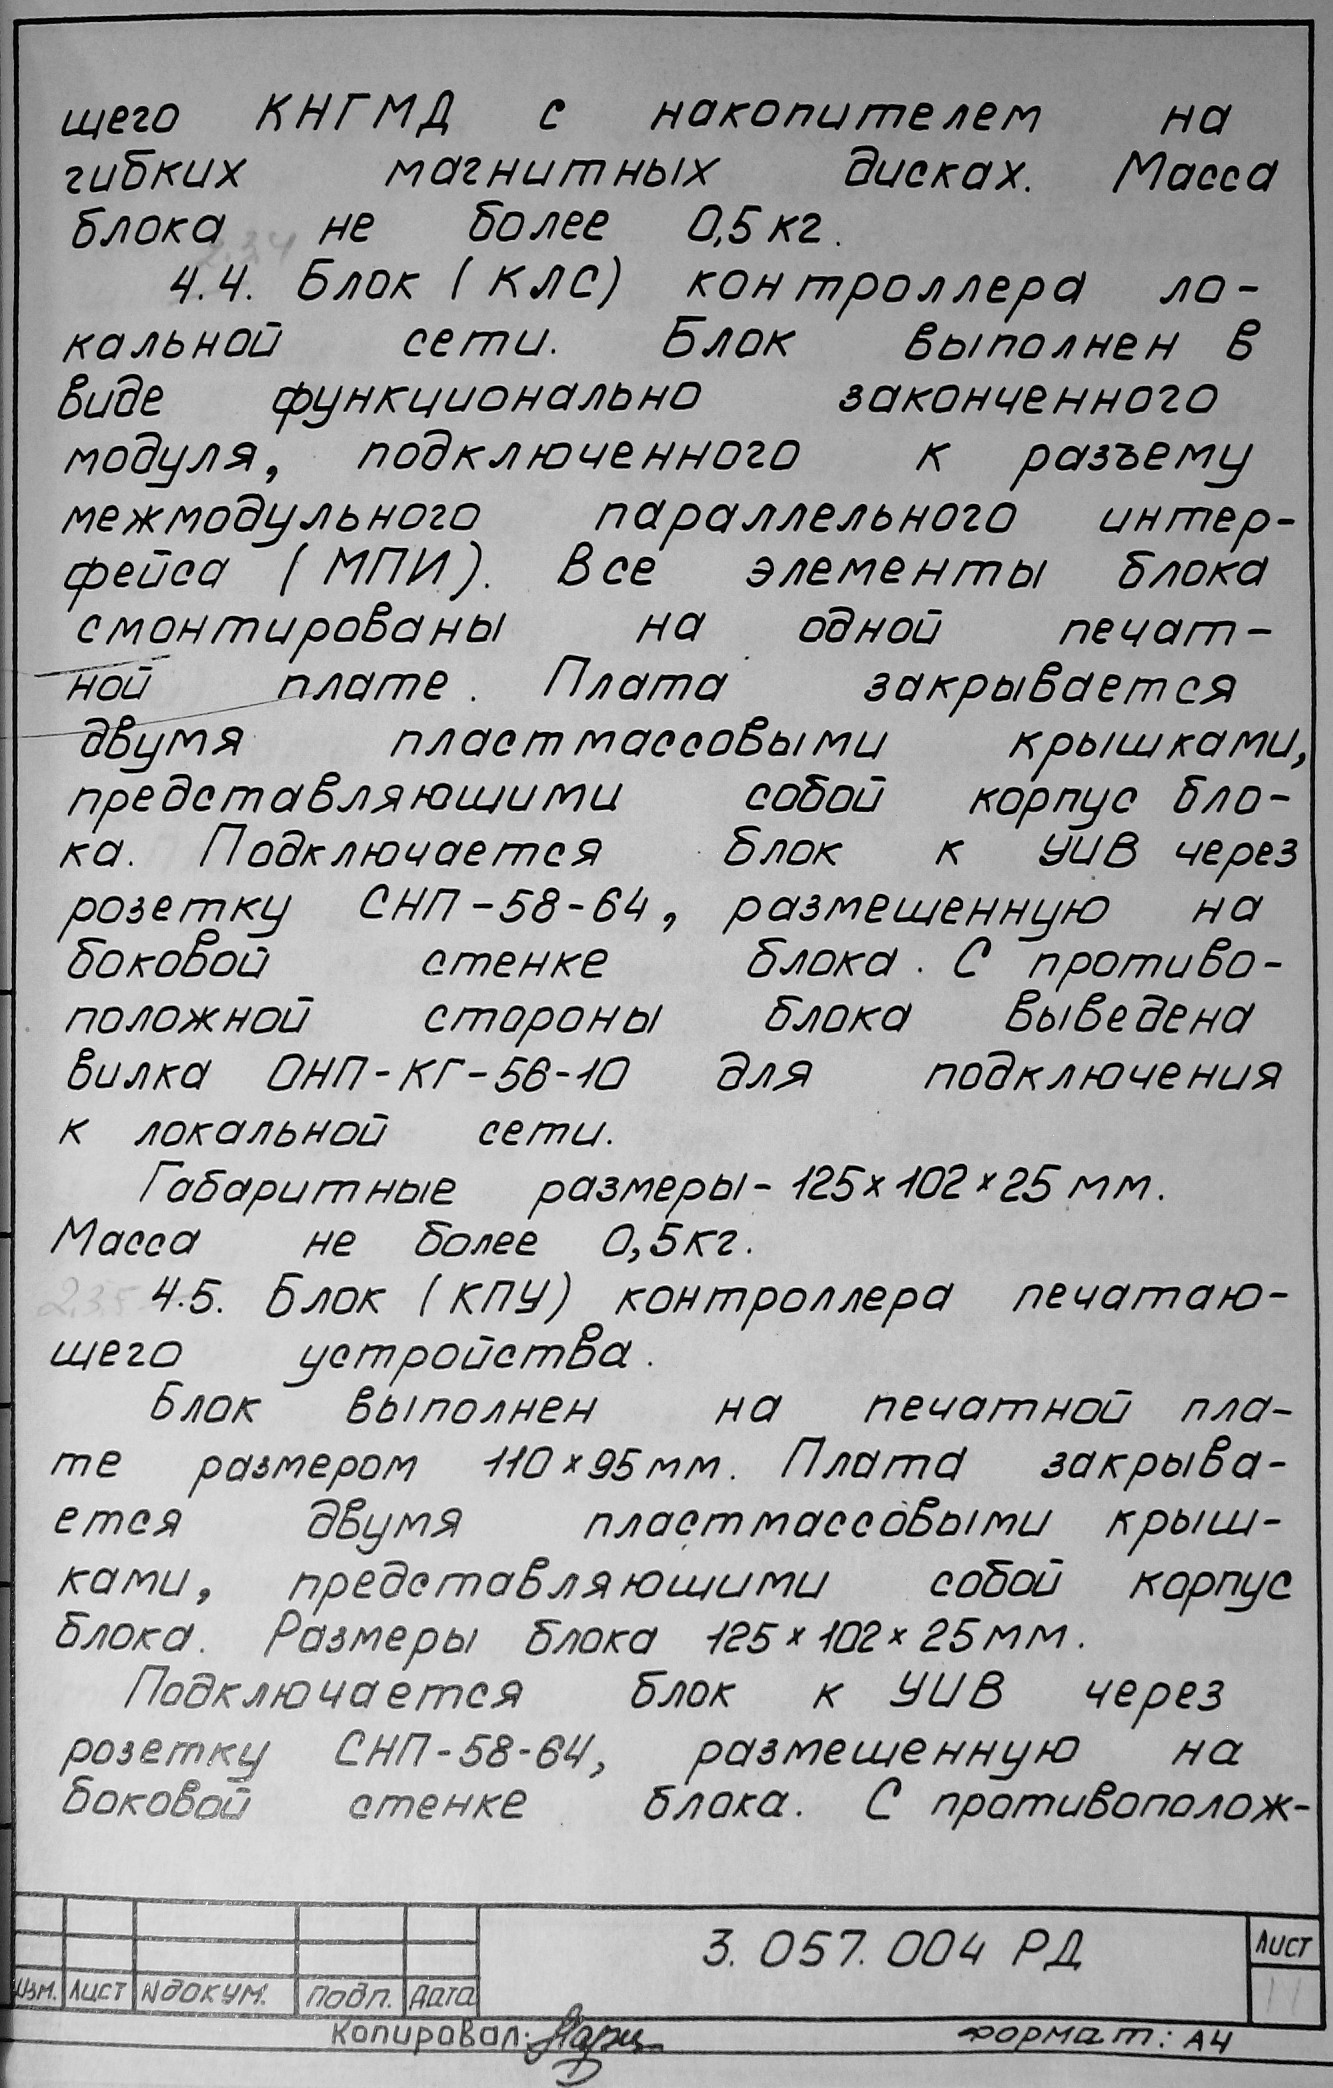 щего КНГМД с накопителем на
гибких магнитных дисках. Масса
блока не более 0,5кг.
2.3.4
4.4. Блок (КЛС) контроллера ло-
кальной сети. Блок выполнен в
виде функционально законченного
модуля, подключенного к разъему
межмодульного параллельного интер-
фейса (МПИ). Все элементы блока
смонтированы на одной печат-
ной плате. Плата закрывается
двумя пластмассовыми крышками,
представляющими собой корпус бло-
ка. Подключается блок к УИВ через
розетку СНП-58-64, размещенную на
боковой стенке блока. С противо-
положной стороны блока выведена
вилка ОНП-КГ-56-10 для подключения
к локальной сети.
Габаритные размеры-125×102×25мм.
Масса не более 0,5кг.
2.3.5
4.5. Блок (КПУ) контроллера печатаю-
щего устройства.
Блок выполнен на печатной пла-
те размером 110×95мм. Плата закрыва-
ется двумя пластмассовыми крыш-
ками, представляющими собой корпус
блока. Размеры блока 125×102×25мм.
Подключается блок к УИВ через
розетку СНП-58-64, размещенную на
боковой стенке блока. С противополож-
3.057.004 РД
Лист
11
Изм. Лист №докум. Подп. Дата
Копировал: формат: А4